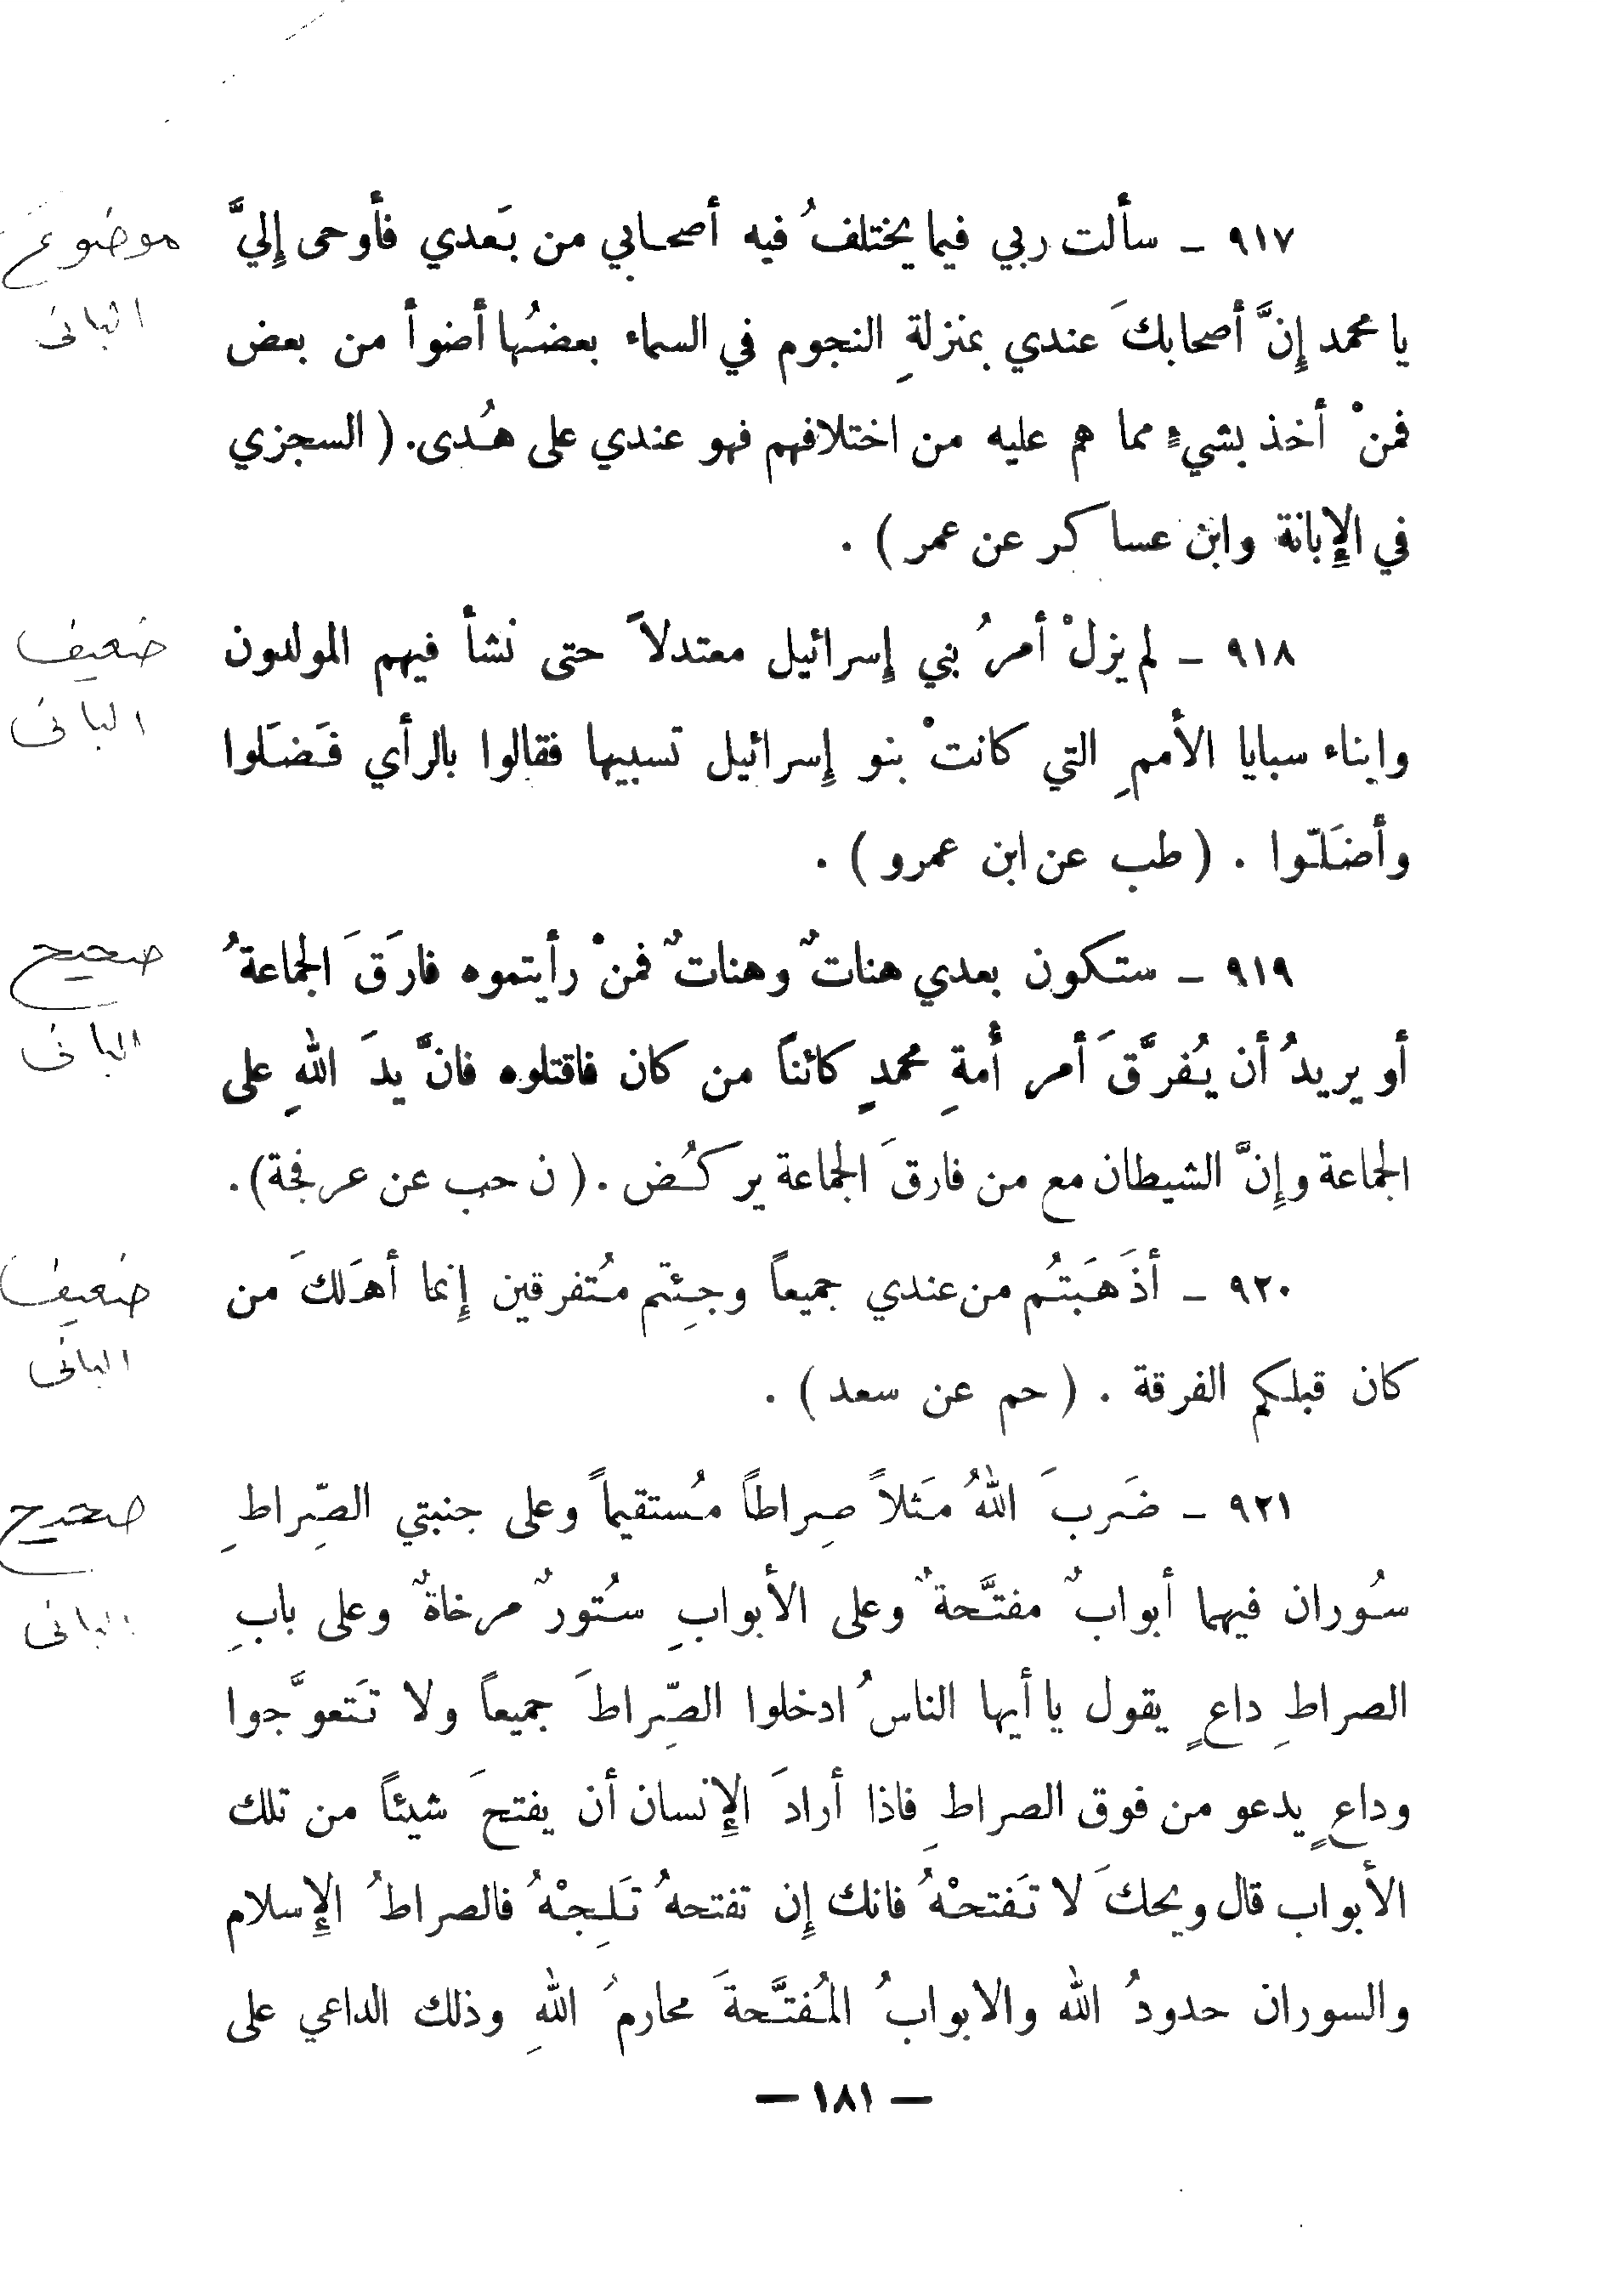 ٩١٧ ــ سألت ربي فيما يختلفُ فيه أصحـابي من بَعدي فأوحى إِليَّ
موضوع
يا محمد إِنَّ أصحابكَ عندي بمنزلةِ النجوم في السماء بعضُها أضوأ من بعض
البانى
فمنْ أخذ بشيءٍ مما هم عليه من اختلافهم فهو عندي على هُدى. ( السجزي
في الإِبانة وابن عساكر عن عمر ) .
٩١٨ ــ لم يزلْ أمرُ بني إِسرائيل معتدلاً حتى نشأ فيهم المولدون
ضعيف
البانى
وابناء سبايا الأممِ التي كانتْ بنو إِسرائيل تسبيها فقالوا بالرأي فَضَلوا
وأضَلّوا . ( طب عن ابن عمرو ) .
٩١٩ ــ ستكون بعدي هناتٌ وهناتٌ فمنْ رأيتموه فارَقَ الجماعةُ
صحيح
البانى
أو يريدُ أن يُفرَّقَ أمر أُمةِ محمدٍ كائناً من كان فاقتلوه فانَّ يدَ اللهِ على
الجماعة وإِنَّ الشيطان مع من فارقَ الجماعة يركُض . ( ن حب عن عرفجة ) .
٩٢٠ ــ أذَهَبتُم من عندي جميعاً وجِئتم مُتفرقين إِنما أهَلكَ من
ضعيف
البانى
كان قبلكم الفرقة . ( حم عن سعد ) .
٩٢١ ــ ضَربَ اللهُ مَثلاً صِراطاً مُستقيماً وعلى جنبتي الصِّراطِ
صحيح
سُوران فيهما أبوابٌ مفتَّحةٌ وعلى الأبوابِ ستُورٌ مرخاةٌ وعلى بابِ
البانى
الصراطِ داعٍ يقول يا أيها الناسُ ادخلوا الصِّراطَ جميعاً ولا تَتعوَّجوا
وداعٍ يدعو من فوق الصراطِ فاذا أرادَ الإِنسان أن يفتحَ شيئاً من تلك
الأبواب قال ويحكَ لا تَفتحْهُ فانك إِن تفتحهُ تَلِجْهُ فالصراطُ الإِسلام
والسوران حدودُ الله والابوابُ المُفتَّحةَ محارمُ اللهِ وذلك الداعي على
— ١٨١ —